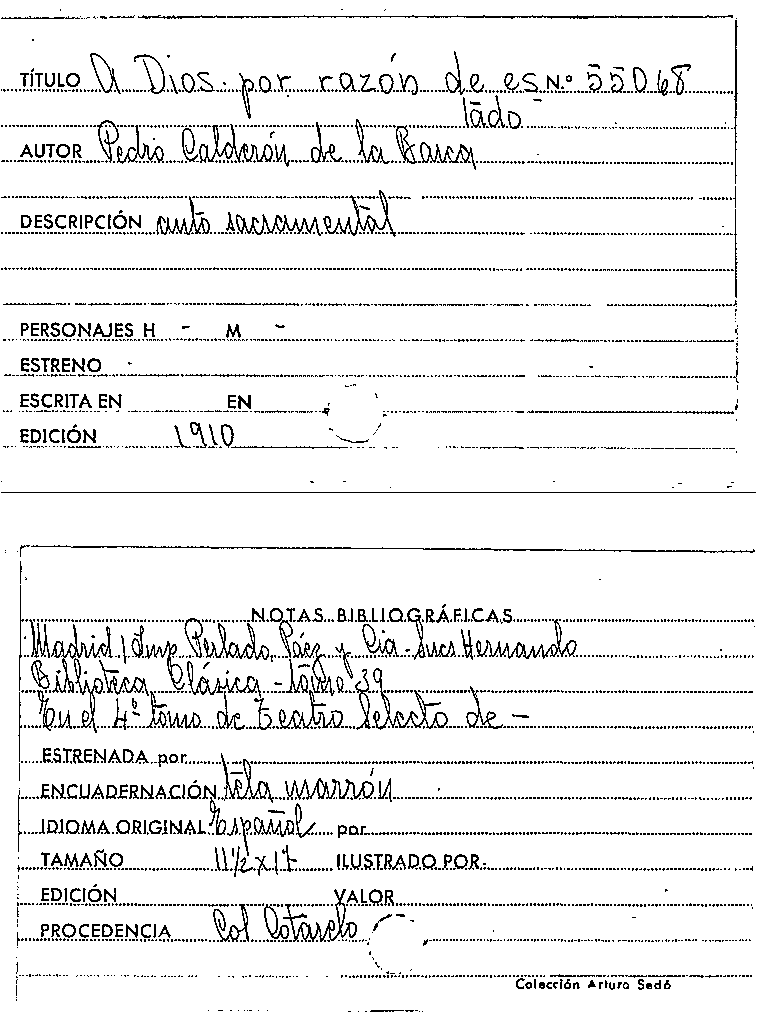 TÍTULO A Dios por razón de es N.º 55068
tado
AUTOR Pedro Calderón de la Barca
DESCRIPCIÓN auto sacramental
PERSONAJES H - M -
ESTRENO -
ESCRITA EN EN
EDICIÓN 1910
NOTAS BIBLIOGRÁFICAS
Madrid / Imp Perlado, Páez y Cia - Sucs Hernando
Biblioteca Clásica - tomo 39
En el 4º tomo de Teatro Selecto de -
ESTRENADA por
ENCUADERNACIÓN tela marrón
IDIOMA ORIGINAL Español por
TAMAÑO 11½ x 17 ILUSTRADO POR
EDICIÓN VALOR
PROCEDENCIA Col Cotarelo
Colección Arturo Sedó